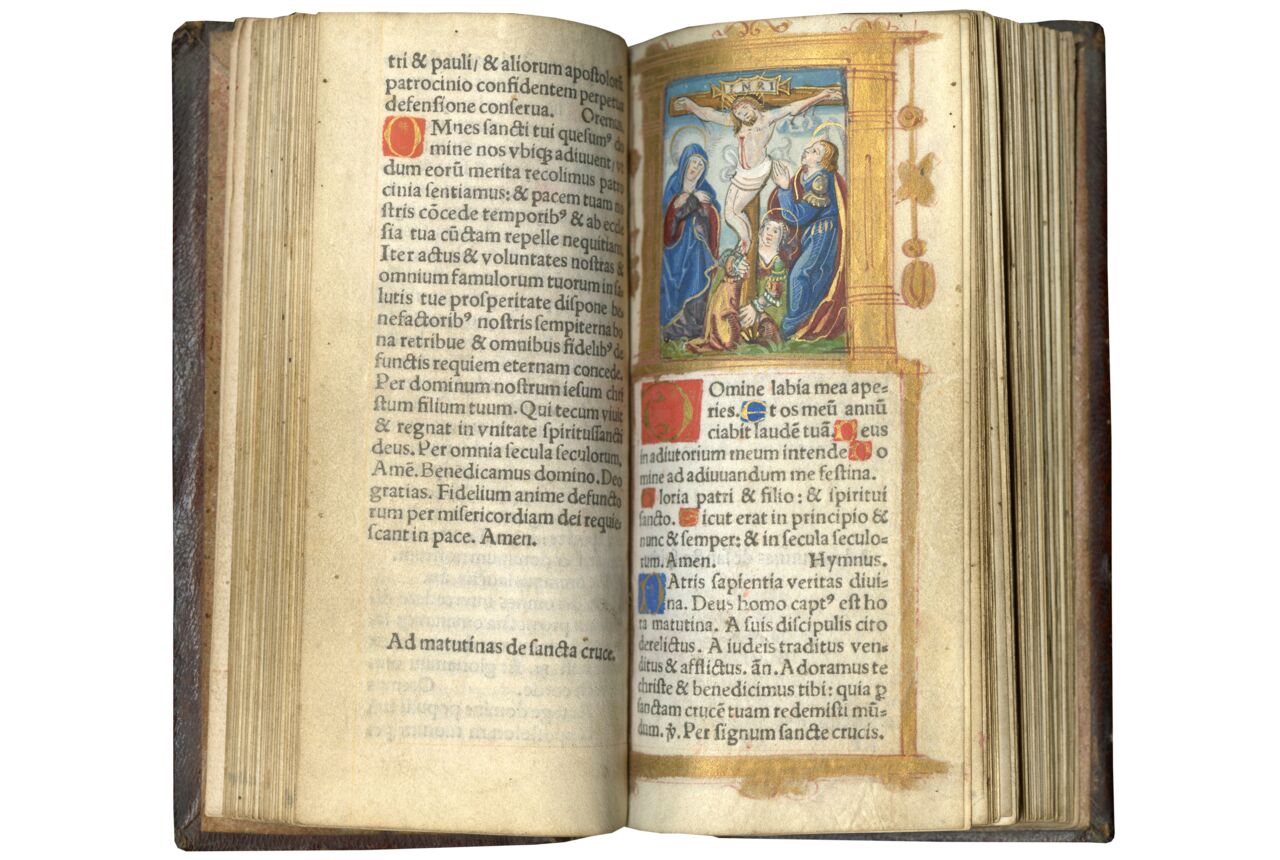 tri & pauli/ & aliorum apostolorū
patrocinio confidentem perpetua
defensione conserua. Oremus.
OMnes sancti tui quesumꝰ do
mine nos vbiqꝫ adiuuent/ vt
dum eorū merita recolimus patro
cinia sentiamus: & pacem tuam no
stris cōcede temporibꝰ & ab eccle
sia tua cūctam repelle nequitiam
Iter actus & voluntates nostras &
omnium famulorum tuorum in sa
lutis tue prosperitate dispone be
nefactoribꝰ nostris sempiterna bo
na retribue & omnibus fidelibꝰ de
functis requiem eternam concede.
Per dominum nostrum iesum chri
stum filium tuum. Qui tecum viuit
& regnat in vnitate spiritussancti
deus. Per omnia secula seculorum.
Amē. Benedicamus domino. Deo
gratias. Fidelium anime defuncto
rum per misericordiam dei requie-
scant in pace. Amen.
Ad matutinas de sancta cruce.
INRI
DOmine labia mea ape-
ries. Et os meū annū
ciabit laudē tuā. Deus
in adiutorium meum intende Do
mine ad adiuuandum me festina.
Gloria patri & filio: & spiritui
sancto. Sicut erat in principio &
nunc & semper: & in secula seculo-
rum. Amen. Hymnus.
PAtris sapientia veritas diui-
na. Deus homo captꝰ est ho
ra matutina. A suis discipulis cito
derelictus. A iudeis traditus ven-
ditus & afflictus. ān. Adoramus te
christe & benedicimus tibi: quia ꝑ
sanctam crucē tuam redemisti mū-
dum. ℣. Per signum sancte crucis.